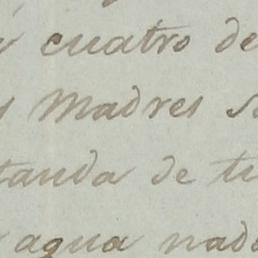 cuatro de
Madres
tanda de
agua nada